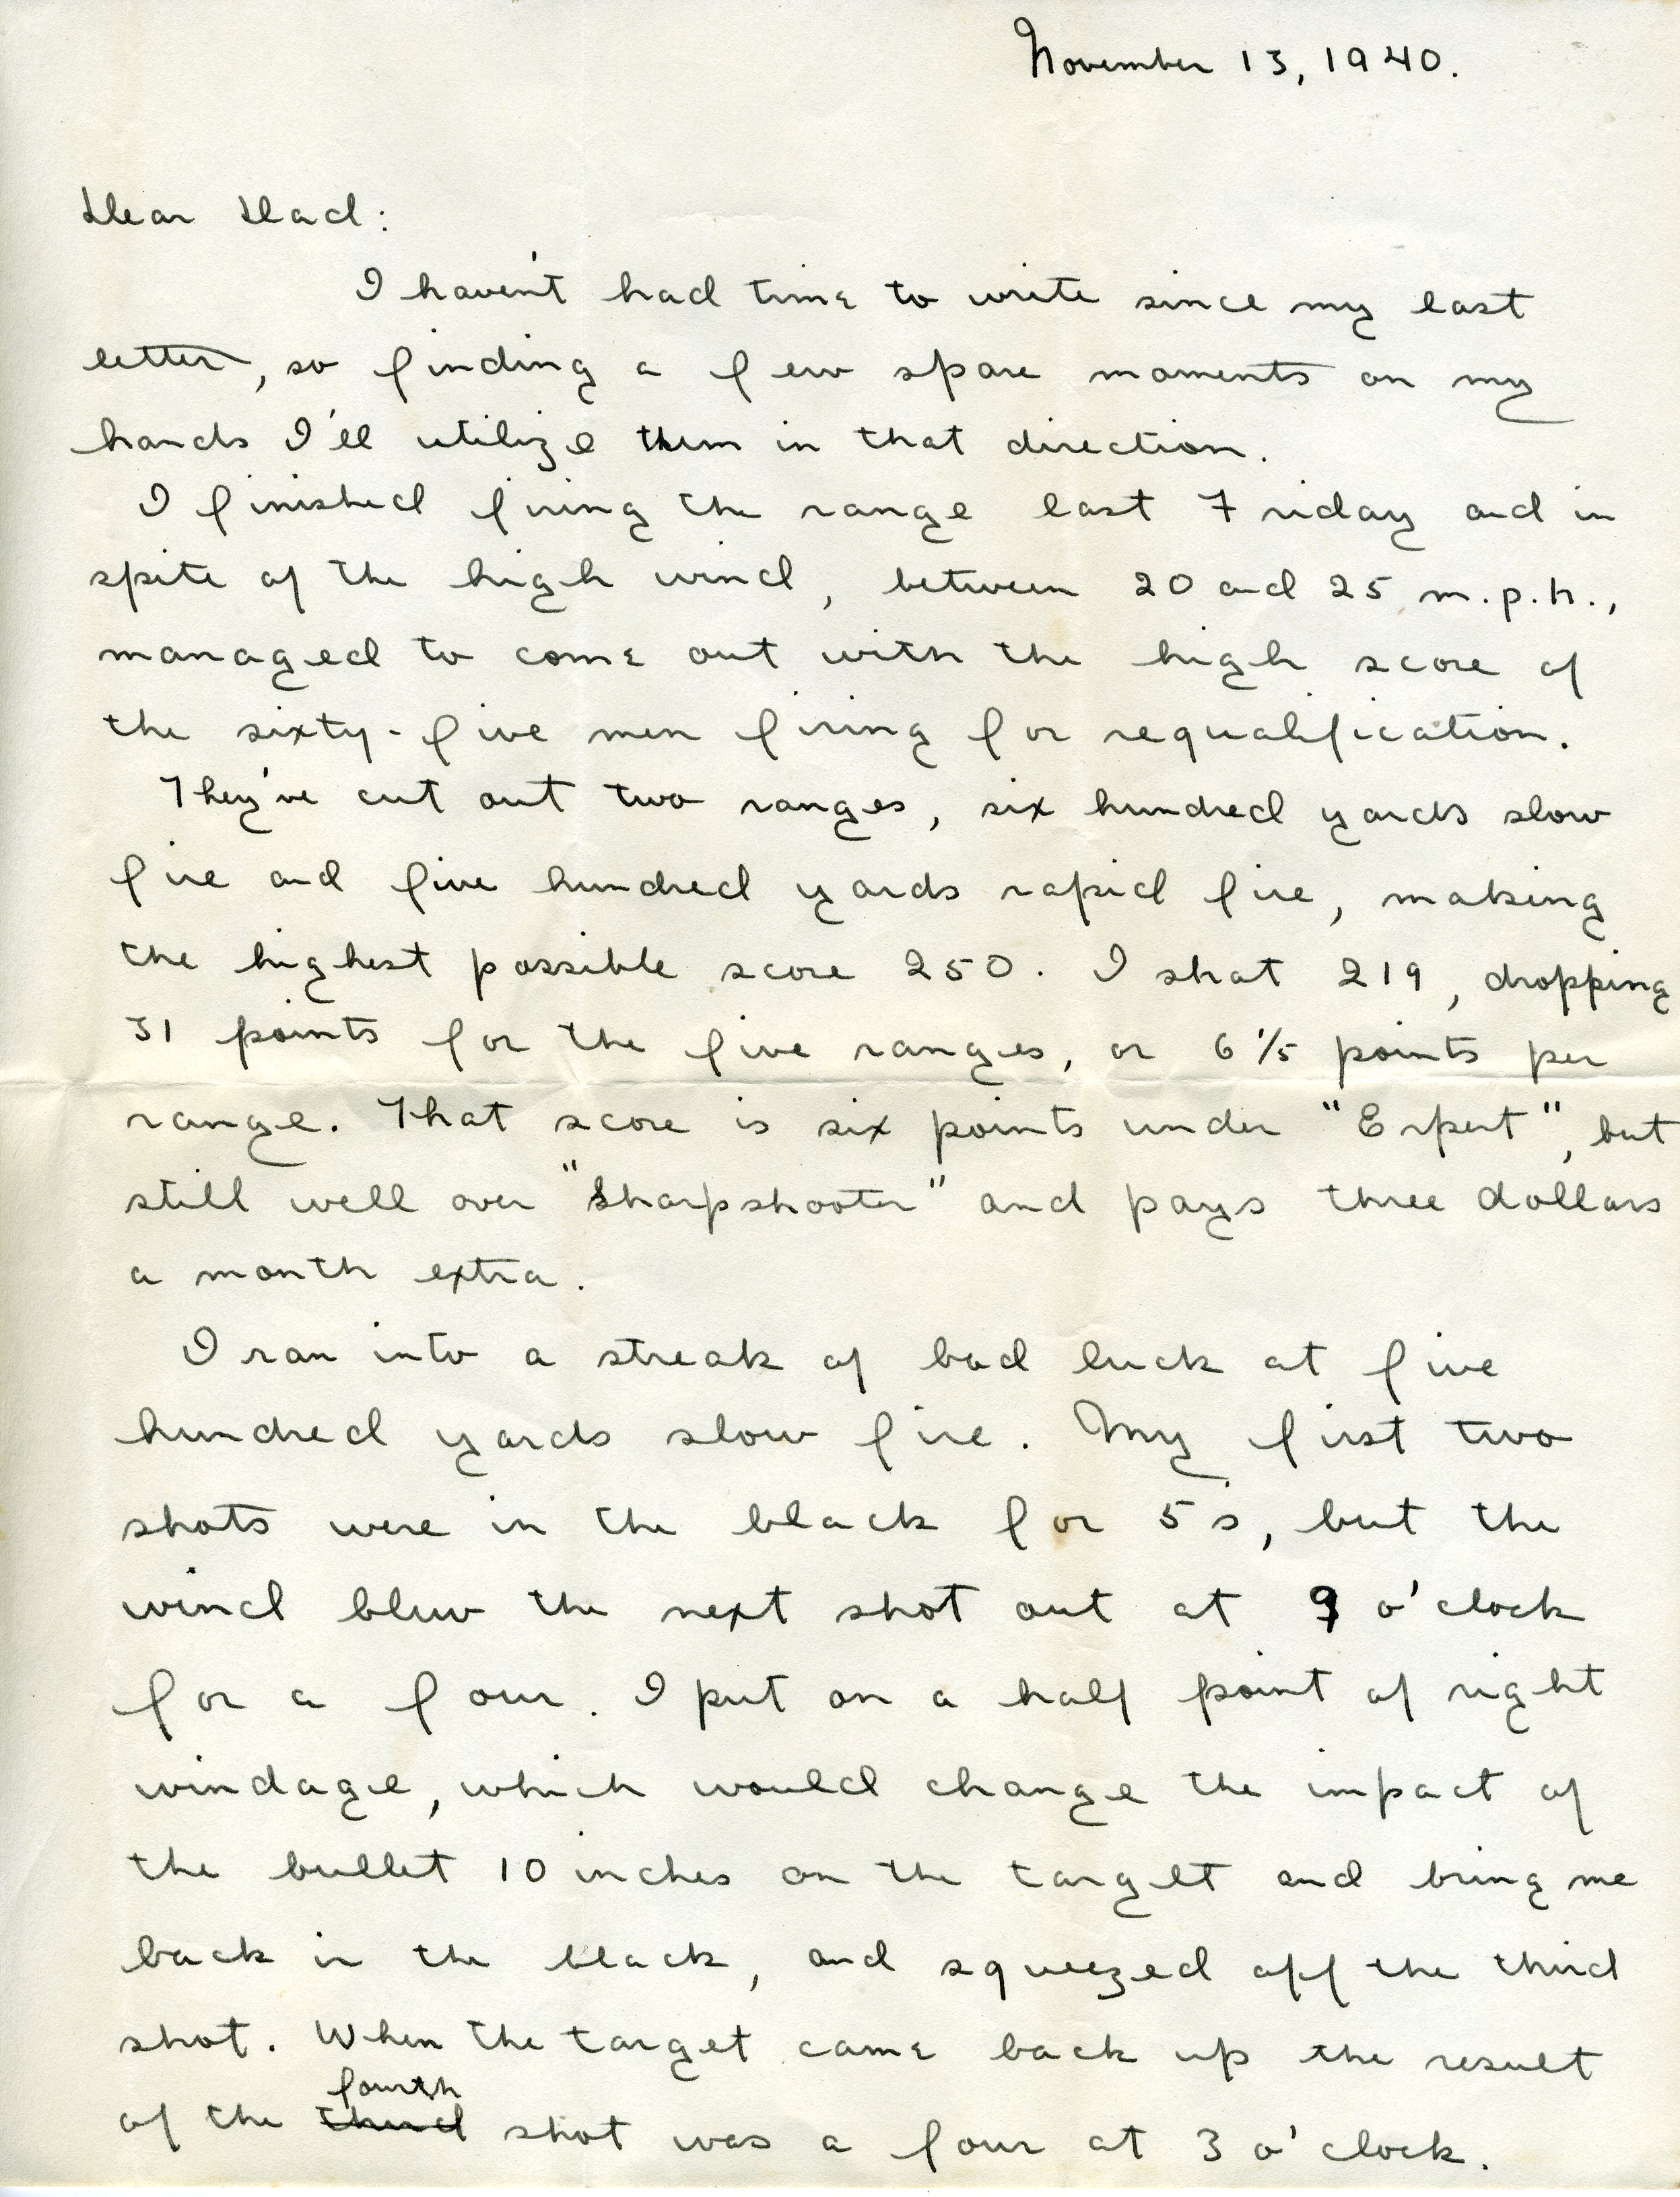 November 13, 1940.
Dear Dad:
I haven't had time to write since my last
letter, so finding a few spare moments on my
hands I'll utilize them in that direction.
I finished firing the range last Friday and in
spite of the high wind, between 20 and 25 m.p.h.,
managed to come out with the high score of
the sixty-five men firing for requalification.
They've cut out two ranges, six hundred yards slow
fire and five hundred yards rapid fire, making
the highest possible score 250. I shot 219, dropping
31 points for the five ranges, or 6 1/5 points per
range. That score is six points under "Expert", but
still well over "Sharpshooter" and pays three dollars
a month extra.
I ran into a streak of bad luck at five
hundred yards slow fire. My first two
shots were in the black for 5's, but the
wind blew the next shot out at 9 o'clock
for a four. I put on a half point of right
windage, which would change the impact of
the bullet 10 inches on the target and bring me
back in the black, and squeezed off the third
shot. When the target came back up the result
fourth
of the third shot was a four at 3 o'clock.